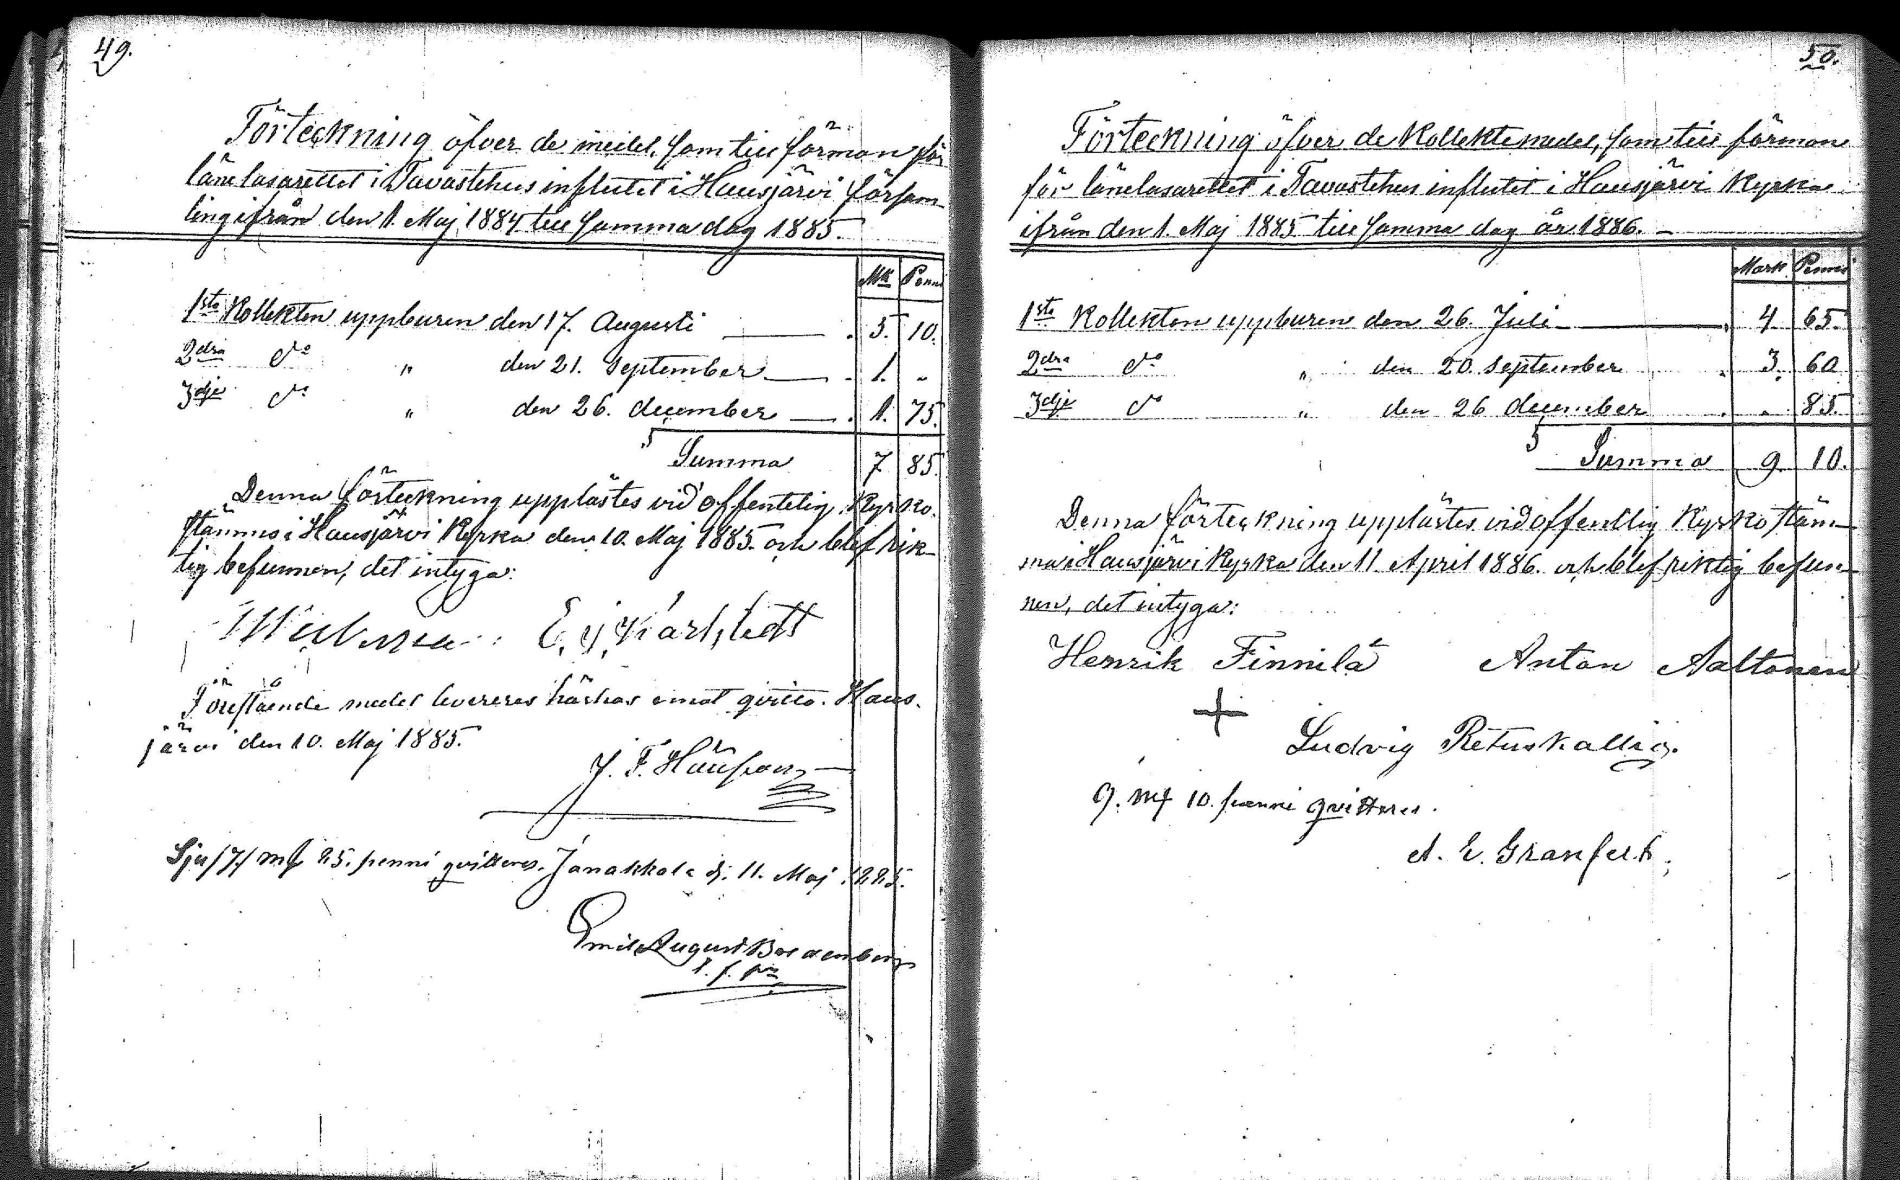 49.
Förteckning öfver de medel, som till förmon för
länelasarettet i Tavastehus influtet i Hausjärvi försam-
ling ifrån den 1. Maj 1884 till samma dag 1885.
Mk Penni
1sta Kollekten uppburen den 17. Augusti 5. 10.
2dra do " den 21. September 1. "
3dje do " den 26. december 1. 75.
Summa 7 85.
Denna förteckning upplästes vid offentelig Kyrko-
stämma i Hausjärvi Kyrka den 10. Maj 1885. och blef rik-
tig befunnen, det intyga:
E. j. Karlstedt
Förestående medel levereras härhos emot qvitto. Haus-
järvi den 10. Maj 1885.
J. F.
Sju /7/ mf 85. penni qvitteras. Janakkala d. 11. Maj 1885.
Emil August
50.
Förteckning öfver de Kollektemedel, som till förmon
för länelasarettet i Tavastehus influtet i Hausjärvi Kyrka
ifrån den 1. Maj 1885 till samma dag år 1886. –
Mark Penni
1sta Kollekten uppburen den 26. Juli 4 65.
2dra do " den 20. September 3. 60
3dje do " den 26 december " 85.
Summa 9. 10.
Denna förteckning upplästes vid offentlig Kyrkostäm-
ma i Hausjärvi Kyrka den 11 April 1886. och blef riktig befun-
nen, det intyga:
Henrik Finnilä Anton Aaltonen
Ludvig Retuskallio.
9. mf 10. penni qvitteras.
A. E. Granfelt.